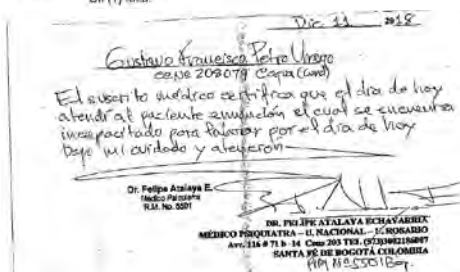 Dic. 11 2018
Gustavo Francisco Petro Urrego
208079
El suscrito médico certifica que el día de hoy
atendí al paciente en mención el cual se encuentra
incapacitado para laborar por el día de hoy
bajo mi cuidado y atención
Dr. Felipe Atalaya E.
Médico Psiquiatra
R.M. No. 5501
DR. FELIPE ATALAYA ECHAVARRIA
MÉDICO PSIQUIATRA – U. NACIONAL – U. ROSARIO
Ave. 116 # 71 b - 14 Cons 203 TEL.
SANTA FE DE BOGOTÁ COLOMBIA
RM Nº 5501 Bog.